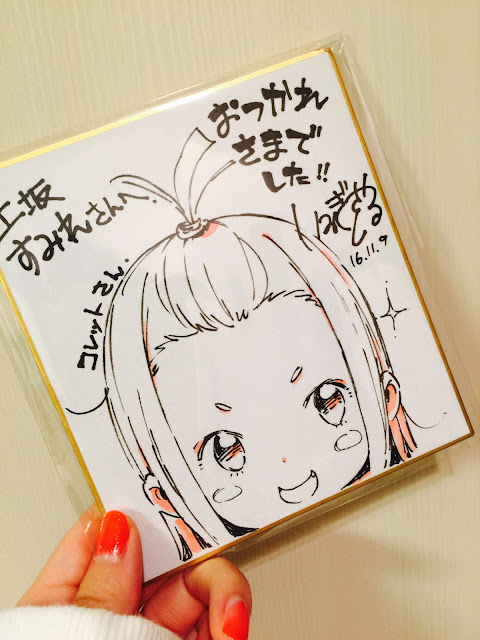 上坂
すみれさんへ.
コレットさん.
おつかれ
さまで
した!!
16.11.9